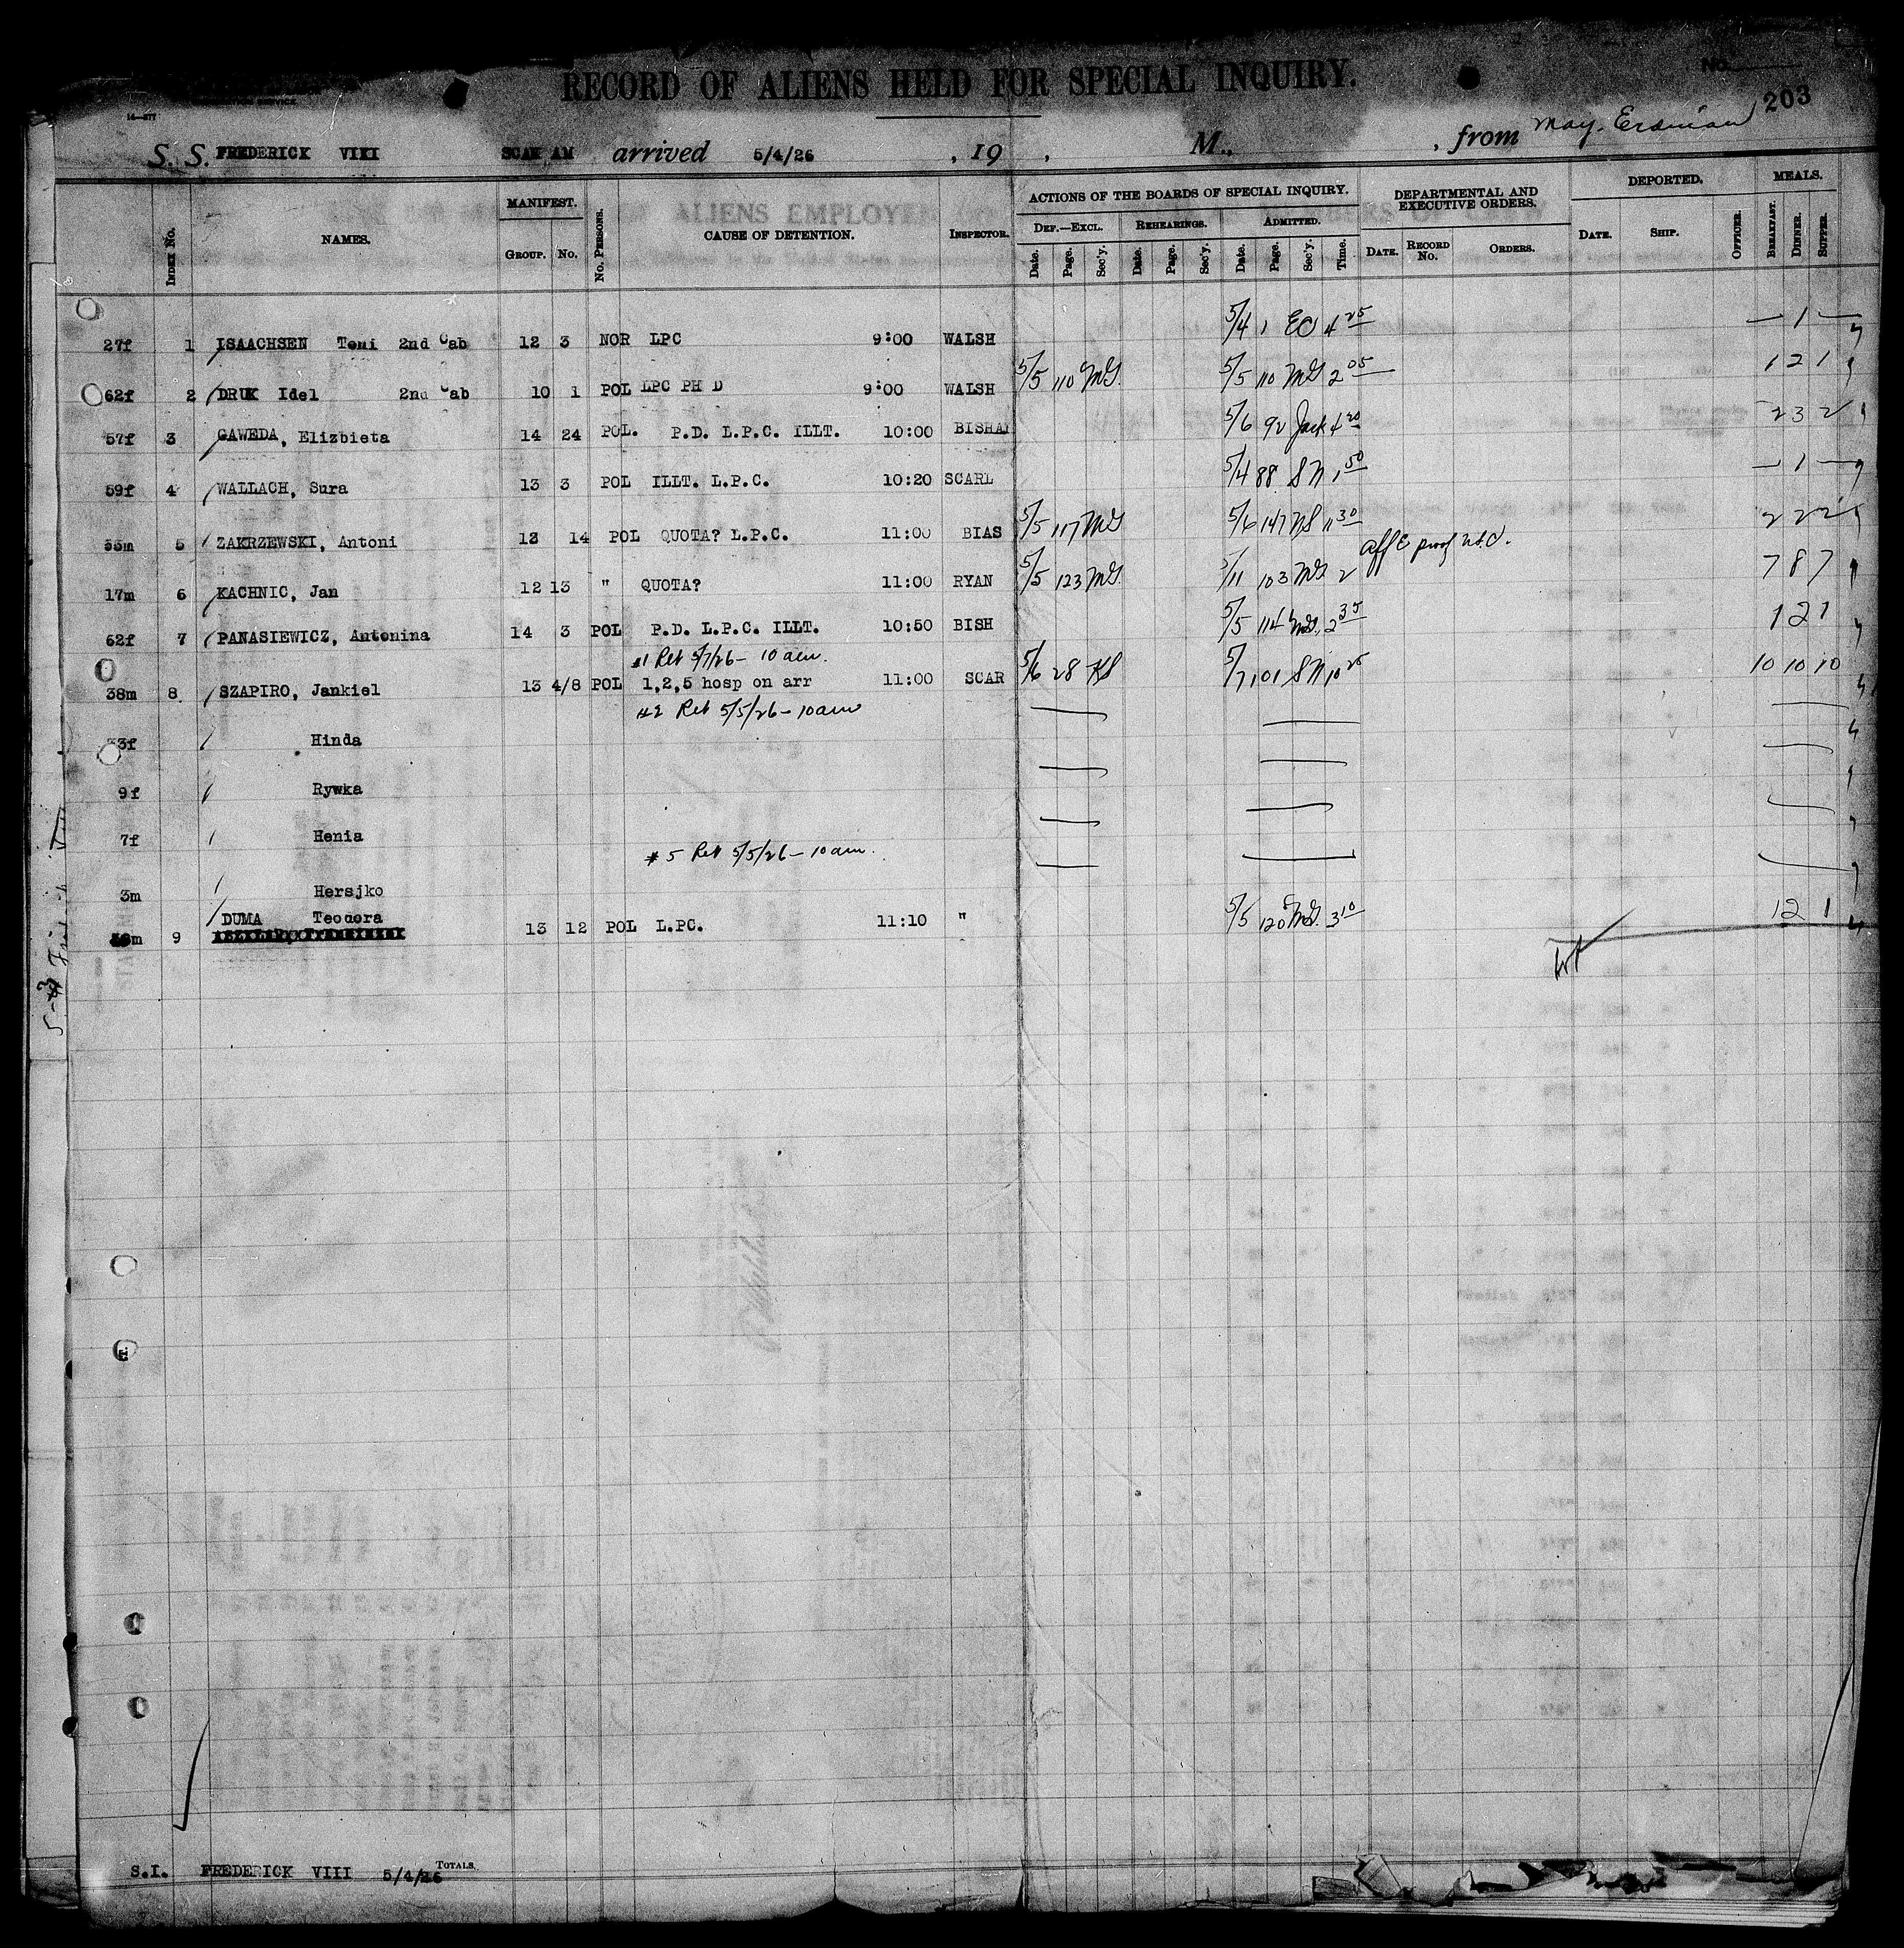 RECORD OF ALIENS HELD FOR SPECIAL INQUIRY.
No.
203
14—577
S. S. FREDERICK VIII SCAN AM arrived 5/4/26 , 19 , M., , from
MANIFEST. ACTIONS OF THE BOARDS OF SPECIAL INQUIRY. DEPARTMENTAL AND EXECUTIVE ORDERS. DEPORTED. MEALS.
INDEX No. NAMES. GROUP. No. No. PERSONS. CAUSE OF DETENTION. INSPECTOR. DEF.—EXCL. REHEARINGS. ADMITTED.
Date. Page. Sec'y. Date. Page. Sec'y. Date. Page. Sec'y. Time. DATE. RECORD No. ORDERS. DATE. SHIP. OFFICER. BREAKFAST. DINNER. SUPPER.
27f 1 ISAACHSEN Toni 2nd Cab 12 3 NOR LPC 9:00 WALSH 5/4 1 EO 4 25 — 1 —
62f 2 DRUK Idel 2nd Cab 10 1 POL LPC PH D 9:00 WALSH 5/5 110 MG 5/5 110 MG 2 05 1 2 1
57f 3 GAWEDA, Elizbieta 14 24 POL. P.D. L.P.C. ILLT. 10:00 BISHAM 5/6 92 Jack 4 20 2 3 2
59f 4 WALLACH, Sura 13 3 POL ILLT. L.P.C. 10:20 SCARL 5/4 88 SN 1 50 — 1 —
55m 5 ZAKRZEWSKI, Antoni 13 14 POL QUOTA? L.P.C. 11:00 BIAS 5/5 117 MG 5/6 147 NS 11 30 2 2 2
17m 6 KACHNIC, Jan 12 13 " QUOTA? 11:00 RYAN 5/5 123 MG. 5/11 103 MG 2 7 8 7
62f 7 PANASIEWICZ, Antonina 14 3 POL P.D. L.P.C. ILLT. 10:50 BISH 5/5 114 MG. 2 35 1 2 1
#1 Ret 5/7/26 - 10 am.
38m 8 SZAPIRO, Jankiel 13 4/8 POL 1,2,5 hosp on arr 11:00 SCAR 5/6 28 KS 5/7 101 SN 10 25 10 10 10
#2 Ret 5/5/26 - 10 am
33f Hinda
9f Rywka
7f Henia
# 5 Ret 5/5/26 - 10 am.
3m Hersjko
DUMA Teodora
9 13 12 POL L.PC. 11:10 " 5/5 120 MG. 3 10 1 2 1
S.I. FREDERICK VIII 5/4/26 TOTALS.